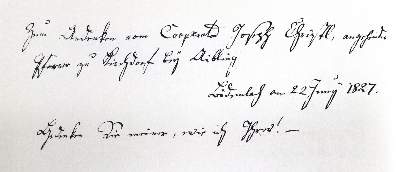 Zum Andenken vom Cooperator Joseph Christl, angehender
Pfarrer zu Kirchdorf bey Aibling
am 22 Juny 1827.
Gedenken Sie meiner, wie ich Ihrer! —